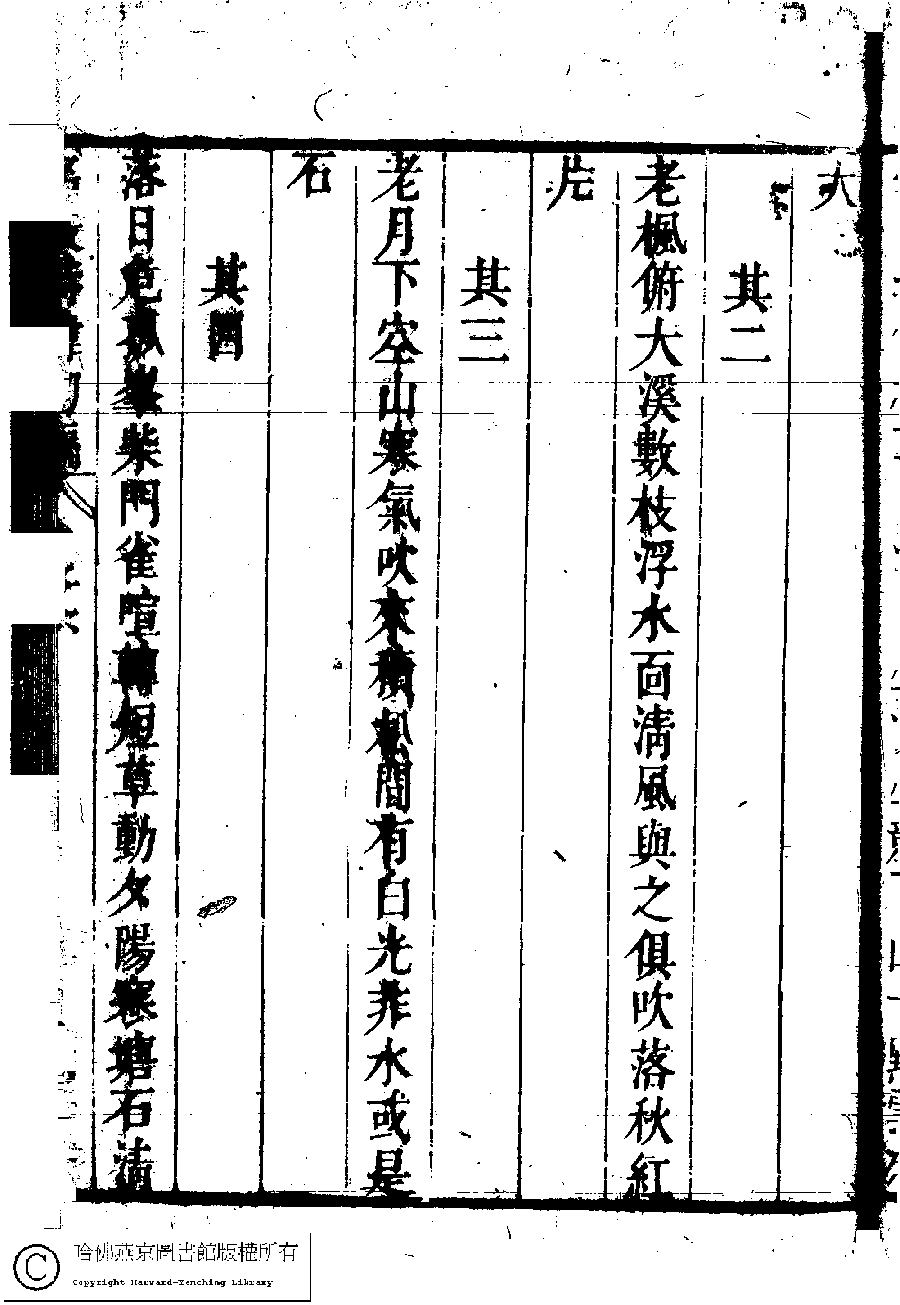 大
其二
老楓俯大溪數枝浮水面清風與之俱吹落秋紅
片
其三
老月下空山寒氣吹來積松間有白光非水或是
石
其四
落日危孤巢柴門雀喧轉短草動夕陽寒塘石清
哈佛燕京圖書館版權所有
Copyright Harvard-Yenching Library